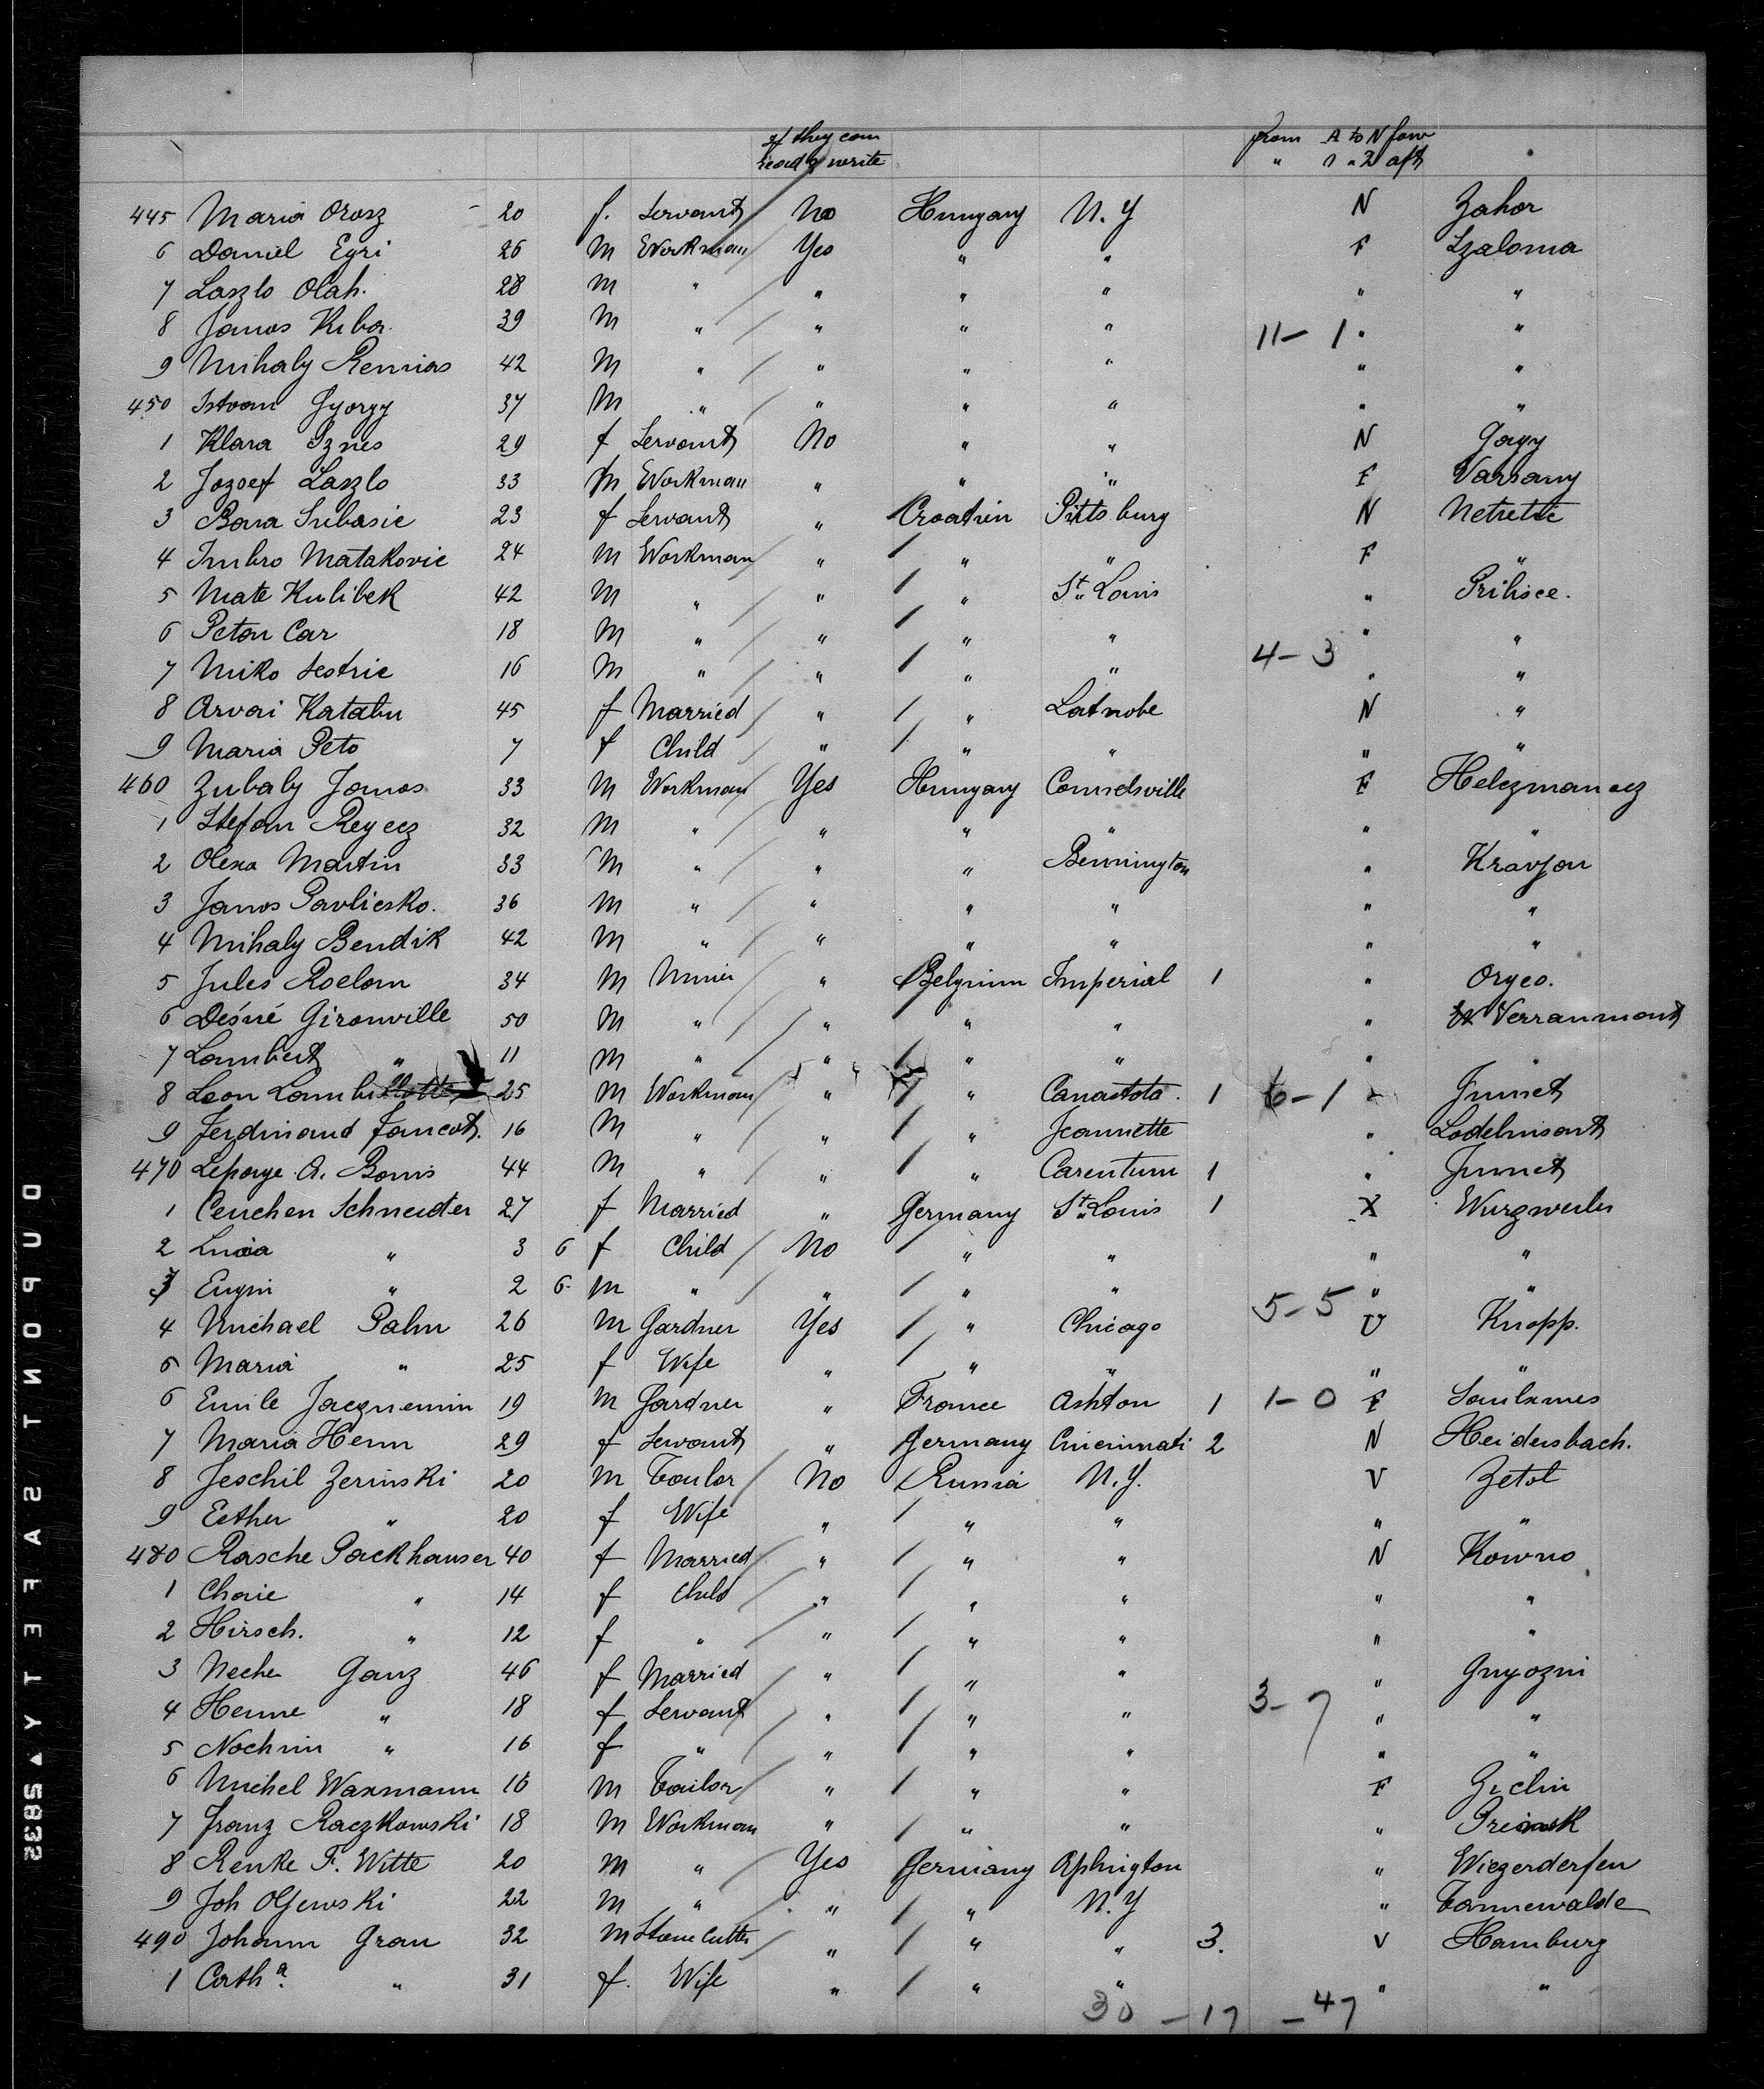 If they can From A to N forw
read & write " 1 " 2 aft
445 Maria Orosz - 20 f. Servant No Hungary N.Y N Zahor
6 Daniel Egri 26 M Workman Yes " " F Szaloma
7 Laszlo Olah. 28 M " " " " " "
8 Janos Kiba 39 M " " " " 11-1 " "
9 Mihaly Remias 42 M " " " " " "
450 Istvan Gyorgy 37 M " " " " " "
1 Klara Sznes 29 f Servant No " " N Gagy
2 Jozsef Laszlo 33 M Workman " " " F Varsany
3 Bara Subasic 23 f Servant " Croatien Pittsburg N Netretic
4 Imbro Matakovic 24 M Workman " " " F "
5 Mate Kulibek 42 M " " " St. Louis " Prilisce.
6 Peton Car 18 M " " " " " "
7 Miko Sestric 16 M " " " " 4-3 " "
8 Arvai Katalin 45 f Married " " Latrobe N "
9 Maria Peto 7 f Child " " " " "
460 Zubaly Janos 33 M Workman Yes Hungary Connelsville F Helczmanocz
1 Stefan Regecz 32 M " " " " " "
2 Olexa Martin 33 M " " " Bennington " Kravjan
3 Janos Pavliesko. 36 M " " " " " "
4 Mihaly Bendik 42 M " " " " " "
5 Jules Roelom 34 M Minier " Belgium Imperial 1 " Orgeo.
6 Désiré Gironville 50 M " " " " " Verranmont
7 Lambert " 11 M " " " " " "
8 Leon Lambillotte 25 M Workman " " Canastota. 1 6-1 " Jumet
9 Ferdinand Jancot. 16 M " " " Jeannette " Lodelinsart
470 Lepage A. Bonis 44 M " " " Carentum 1 " Jumet
1 Cenchen Schneider 27 f Married " Germany St. Louis 1 X Wurzweiler
2 Lucia " 3 6 f Child No " " " "
3 Eugin " 2 6 M " " " " " "
4 Michael Palm 26 M Gardner Yes " Chicago 5-5 V Knopp.
5 Maria " 25 f Wife " " " " "
6 Emile Jacquemin 19 M Gardner " France Ashton 1 1-0 F Saulxmes
7 Maria Henn 29 f Servant " Germany Cincinnati 2 N Heidersbach.
8 Jeschil Zerinski 20 M Tailor No Russia N.Y. V Zetol
9 Esther " 20 f Wife " " " " "
480 Rasche Packhauser 40 f Married " " " N Kowno
1 Chaie " 14 f Child " " " " "
2 Hirsch. " 12 f " " " " " "
3 Neche Ganz 46 f Married " " " " Gnyozni
4 Henne " 18 f Servant " " " 3-7 " "
5 Nochmin " 16 f " " " " " "
6 Michel Waxmann 16 M Tailor " " " F Ziclin
7 Franz Raczkowski 18 M Workman " " " "
8 Renke F. Witte 20 M " Yes Germany Aplington " Wiegerdersen
9 Joh Olsewski 22 M " " " N.Y " Tannewalde
490 Johann Grau 32 M Stone Cutter " " " 3. V Hamburg
1 Catha. " 31 f. Wife " " " " "
30 - 17 - 47
DUPONT SAFETY 5832